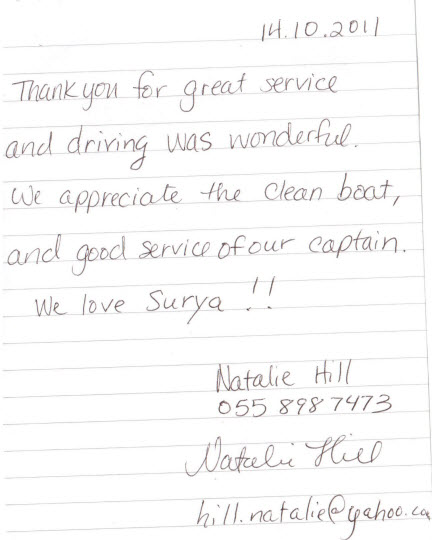 14.10.2011
Thank you for great service
and driving was wonderful.
We appreciate the clean boat,
and good service of our captain.
We love Surya !!
Natalie Hill
055 898 7473
Natalie Hill
hill.natalie@yahoo.ca